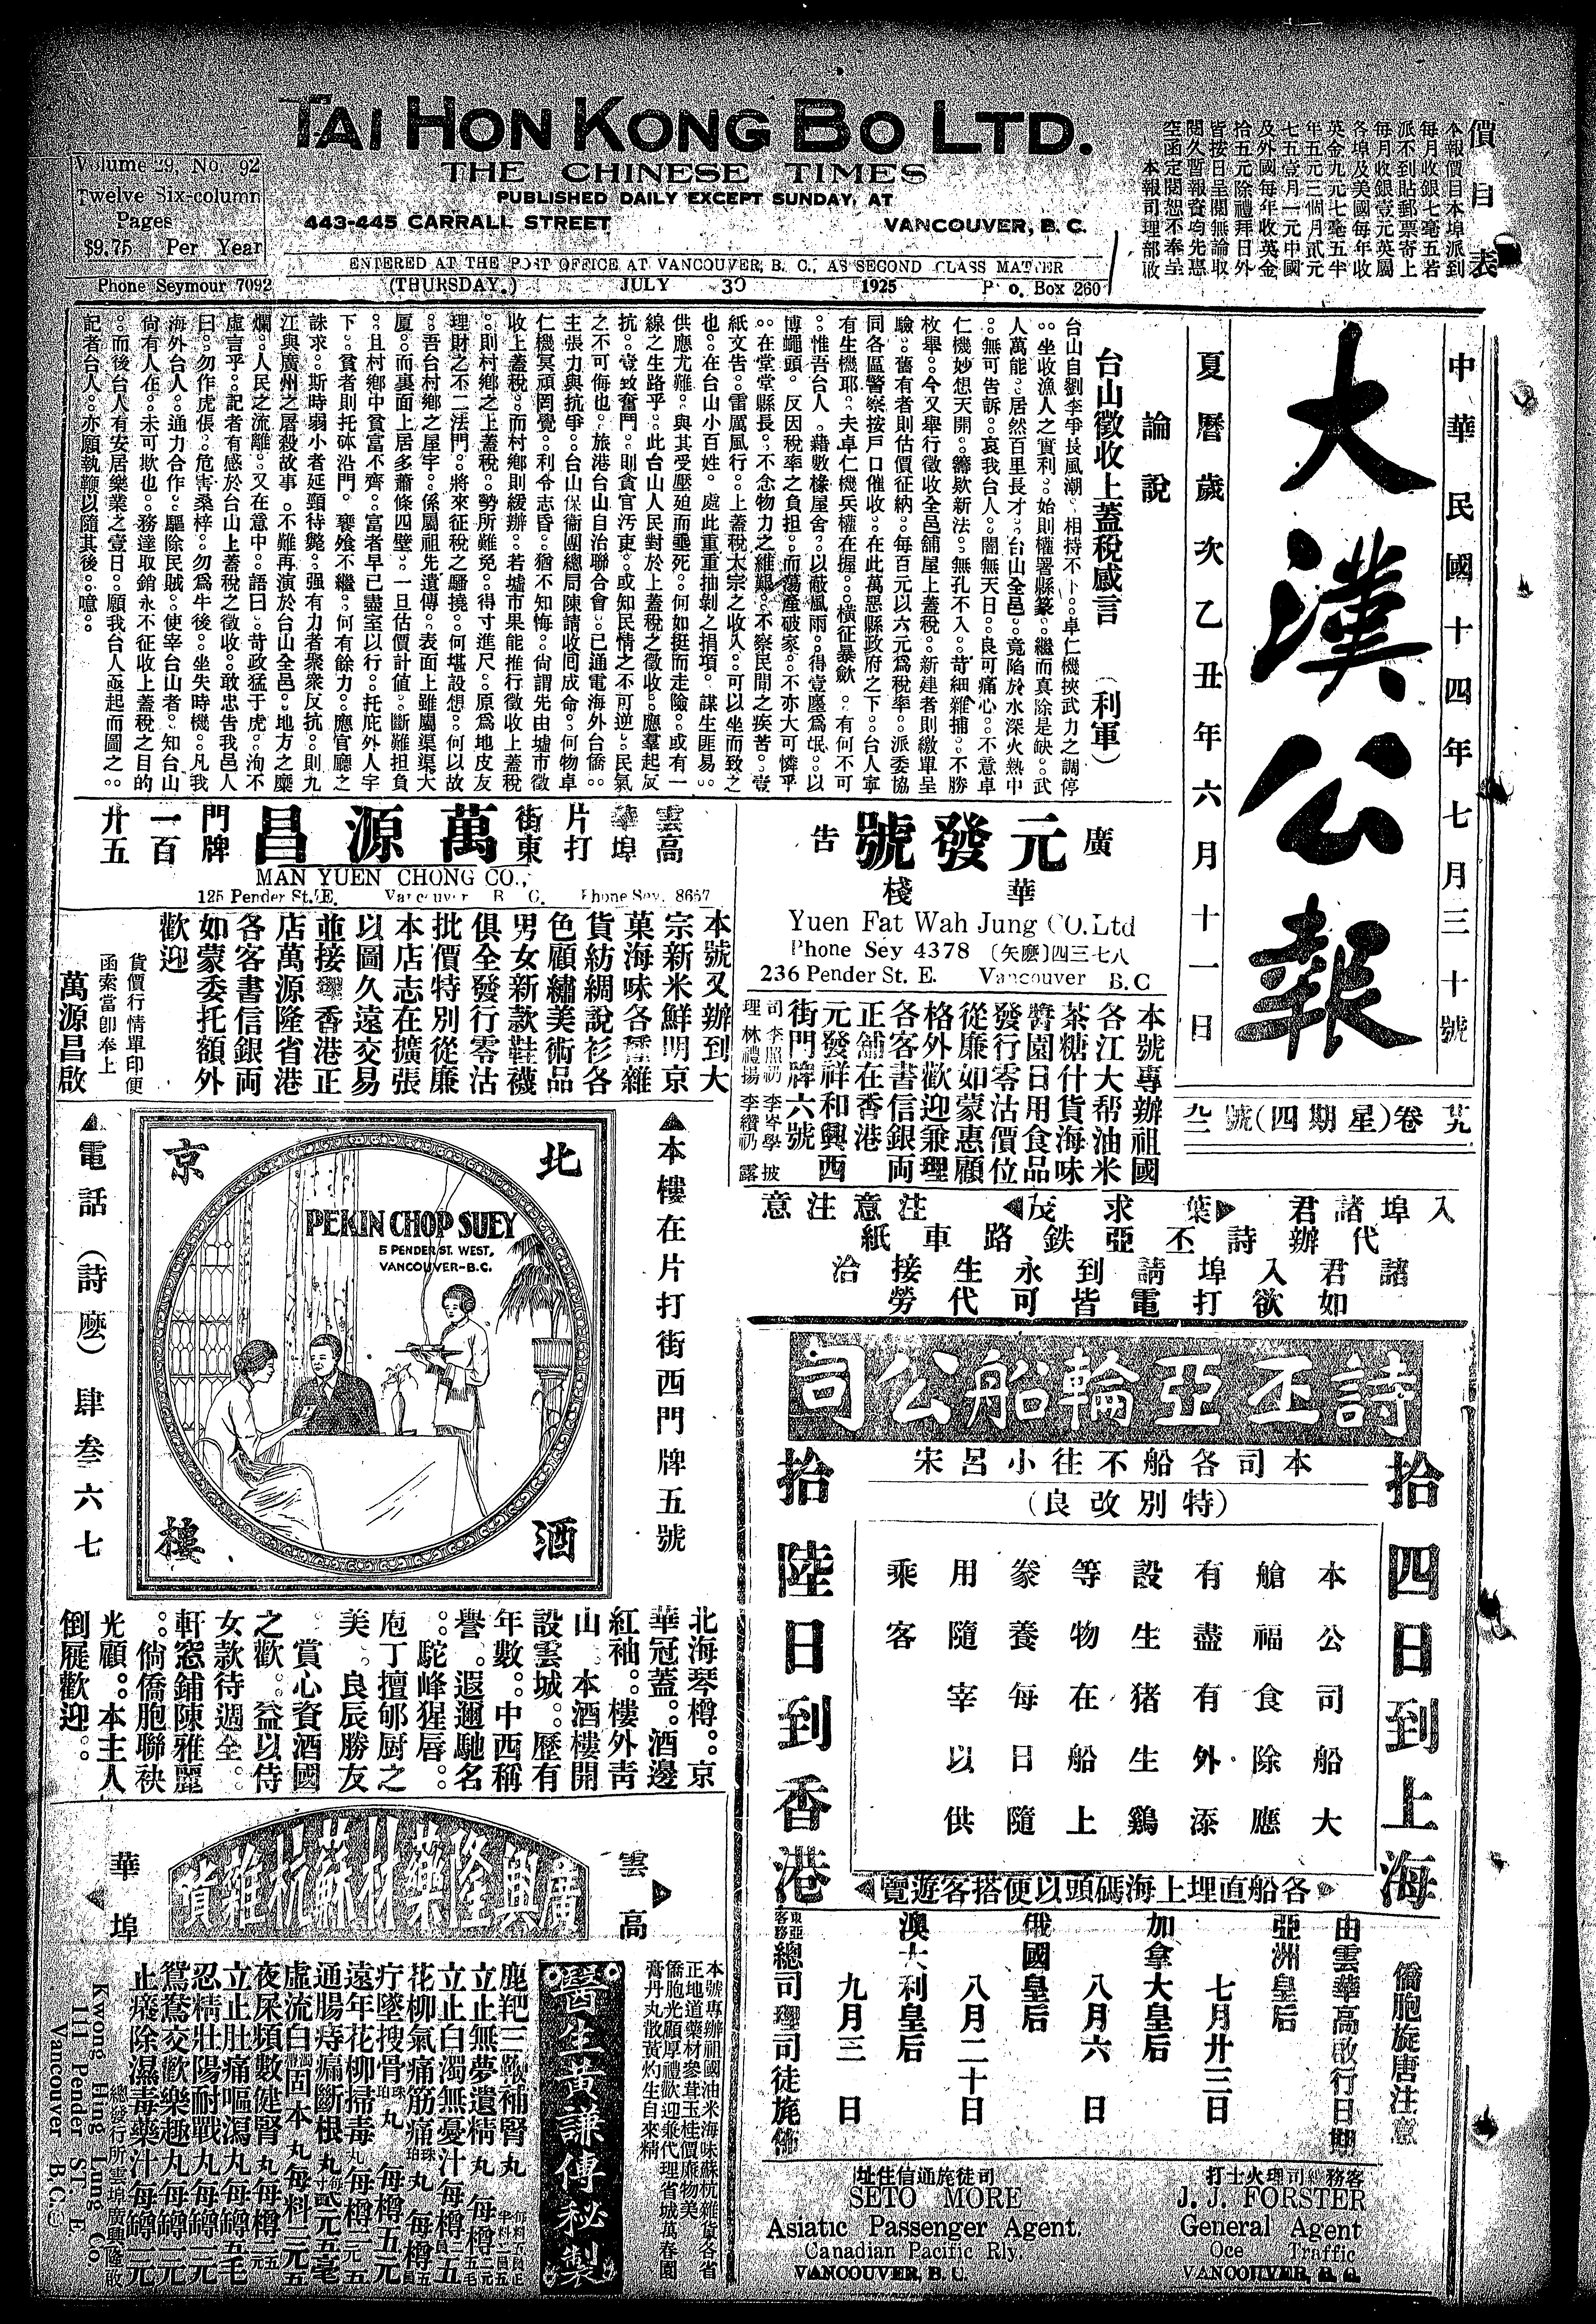 TAI HON KONG BO LTD.
THE CHINESE TIMES
PUBLISHED DAILY EXCEPT SUNDAY, AT
443-445 CARRALL STREET VANCOUVER, B. C.
ENTERED AT THE POST OFFICE AT VANCOUVER, B. C., AS SECOND CLASS MATTER
Volume 29, No. 92
Twelve Six-column
Pages
$9.75 Per Year
Phone Seymour 7092
(THURSDAY.) JULY 30 1925 P. O. Box 260
價目表
本報價目本埠派到
每月收銀七毫五若
派不到貼郵票寄上
每月收銀壹元英屬
各埠及美國每年收
英金九元七毫五半
年五元三個月貳元
七五壹月一元中國
及外國每年收英金
拾五元除禮拜日外
皆按日呈閱無論取
閱久暫報資均先惠
空函定閱恕不奉呈
本報司理部啟
中華民國十四年七月三十號
大漢公報
夏曆歲次乙丑年六月十一日
廿九卷(星期四)號九二
論說
台山徵收上蓋稅感言 (利軍)
台山自劉李爭長風潮。相持不下。。卓仁機挾武力之調停
。。坐收漁人之實利。。始則權署縣篆。。繼而真除是缺。。武
人萬能。。居然百里長才。。台山全邑。。竟陷於水深火熱中
。。無可告訴。。哀我台人。。闇無天日。。良可痛心。。不意卓
仁機妙想天開。。籌欵新法。。無孔不入。。苛細雜捕。。不勝
枚舉。。今又舉行徵收全邑舖屋上蓋稅。。新建者則繳單呈
驗。。舊有者則估價征納。。每百元以六元爲稅率。。派委協
同各區警察按戶口催收。。在此萬惡縣政府之下。。台人寧
有生機耶。。夫卓仁機兵權在握。。橫征暴歛。。有何不可
。。惟吾台人。藉數椽屋舍。。以蔽風雨。。得壹廛爲氓。。以
博蠅頭。反因稅率之負担。。而蕩產破家。。不亦大可憐乎
。。在堂堂縣長。。不念物力之維艱。。不察民間之疾苦。。壹
紙文告。。雷厲風行。。上蓋稅大宗之收入。。可以坐而致之
也。。在台山小百姓。處此重重抽剝之捐項。謀生匪易。。
供應尤難。。與其受壓廹而垂死。。何如挺而走險。。或有一
線之生路乎。。此台山人民對於上蓋稅之徵收。。應羣起反
抗。。壹致奮鬥。。則貪官汚吏。。或知民情之不可逆。。民氣
之不可侮也。。旅港台山自治聯合會。。已通電海外台僑。。
主張力與抗爭。。台山保衛團總局陳請收囘成命。。何物卓
仁機冥頑罔覺。。利令志昏。。猶不知悔。。尙謂先由墟市徵
收上蓋稅。。而村鄉則緩辦。。若墟市果能推行徵收上蓋稅
。。則村鄉之上蓋稅。。勢所難免。。得寸進尺。。原爲地皮友
理財之不二法門。。將來征稅之騷擾。。何堪設想。。何以故
。。吾台村鄉之屋宇。。係屬祖先遺傳。。表面上雖屬渠渠大
厦。。而裏面上居多蕭條四壁。。一旦估價計值。。斷難担負
。。且村鄉中貧富不齊。。富者早已盡室以行。。托庇外人宇
下。。貧者則托砵沿門。饔飧不繼。。何有餘力。。應官廳之
誅求。。斯時弱小者延頸待斃。。强有力者衆衆反抗。。則九
江與廣州之屠殺故事。。不難再演於台山全邑。。地方之糜
爛。。人民之流離。。又在意中。。語曰。。苛政猛于虎。。洵不
虛言乎。。記者有感於台山上蓋稅之徵收。。敢忠告我邑人
曰。。勿作虎倀。。危害桑梓。。勿爲牛後。。坐失時機。。凡我
海外台人。。通力合作。。驅除民賊。。使宰台山者。。知台山
尙有人在。。未可欺也。。務達取銷永不征收上蓋稅之目的
。。而後台人有安居樂業之壹日。。願我台人亟起而圖之。。
記者台人。。亦願執鞭以隨其後。。噫。。
廣告
元發號
華棧
Yuen Fat Wah Jung CO. Ltd
Phone Sey 4378 〔矢麽〕四三七八
236 Pender St. E. Vancouver B.C
本號專辦祖國
各江大帮油米
茶糖什貨海味
醬園日用食品
發行零沽價位
從廉如蒙惠顧
格外歡迎兼理
各客書信銀両
正舖在香港
元發祥和興西
街門牌六號
雲高華埠片打街東
萬源昌
門牌一百廿五
MAN YUEN CHONG CO.,
125 Pender St. E. Vancouver B. C. Phone Sey. 8657
本號又辦到大
宗新米鮮明京
菓海味各種雜
貨紡綢說衫各
色顧繡美術品
男女新款鞋襪
俱全發行零沽
批價特別從廉
本店志在擴張
以圖久遠交易
並接駁香港正
店萬源隆省港
各客書信銀両
如蒙委托額外
歡迎
貨價行情單印便
函索當卽奉上
萬源昌啟
入埠諸君 葉求茂 注意注意
代辦詩丕亞鉄路車紙
諸君入埠請到永生接洽
如欲打電皆可代勞
本樓在片打街西門牌五號
北京酒樓
PEKIN CHOP SUEY
5 PENDER ST. WEST,
VANCOUVER-B.C.
電話(詩麽)肆叁六七
北海琴樽。。京
華冠蓋。。酒邊
紅袖。。樓外靑
山。本酒樓開
設雲城。。歷有
年數。。中西稱
譽。。遐邇馳名
。。駝峰猩唇。。
庖丁擅郇厨之
美。良辰勝友
。賞心資酒國
之歡。。益以侍
女款待週全。。
軒窓鋪陳雅麗
。。倘僑胞聯袂
光顧。。本主人
倒屣歡迎。。
詩丕亞輪船公司
本司各船不往小呂宋
(特別改良)
拾四日到上海
拾陸日到香港
本公司船大
艙福食除應
有盡有外添
設生猪生鷄
等物在船上
豢養每日隨
用隨宰以供
乘客
各船直埋上海碼頭以便搭客遊覽
僑胞旋唐注意
由雲華高啟行日期
亞洲皇后 七月廿三日
加拿大皇后 八月六日
俄國皇后 八月二十日
澳大利皇后 九月三日
東亞客務總司理司徒旄佈
客務總司理火士打
J. J. FORSTER
General Agent
Oce Traffic
VANCOUVER, B. C.
司徒旄通信住址
SETO MORE
Asiatic Passenger Agent.
Canadian Pacific Rly.
VANCOUVER, B. C.
雲高華埠
廣興隆藥材蘇杭雜貨
本號專辦祖國油米海味蘇杭雜貨各省
正地道藥材參茸玉桂價廉物美
僑胞光顧厚禮歡迎兼代理省城萬春園
膏丹丸散黃灼生自來精
醫生黃謙傳秘製
鹿羓三鞭補腎丸
立止無夢遺精丸
立止白濁無憂汁
花柳氣痛筋痛丸
疔墜搜骨丸 每樽五元
遠年花柳掃毒丸
通腸痔瘺斷根丸
虛流白濁固本丸
夜尿頻數健腎丸
立止肚痛嘔瀉丸 每罇五毛
忍精壯陽耐戰丸 每罇一元
鴛鴦交歡樂趣丸 每罇一元
止癢除濕毒藥汁 每罇一元
總發行所雲埠廣興隆啟
Kwong Hing Lung Co
111 Pender ST. E
Vancouver B.C.